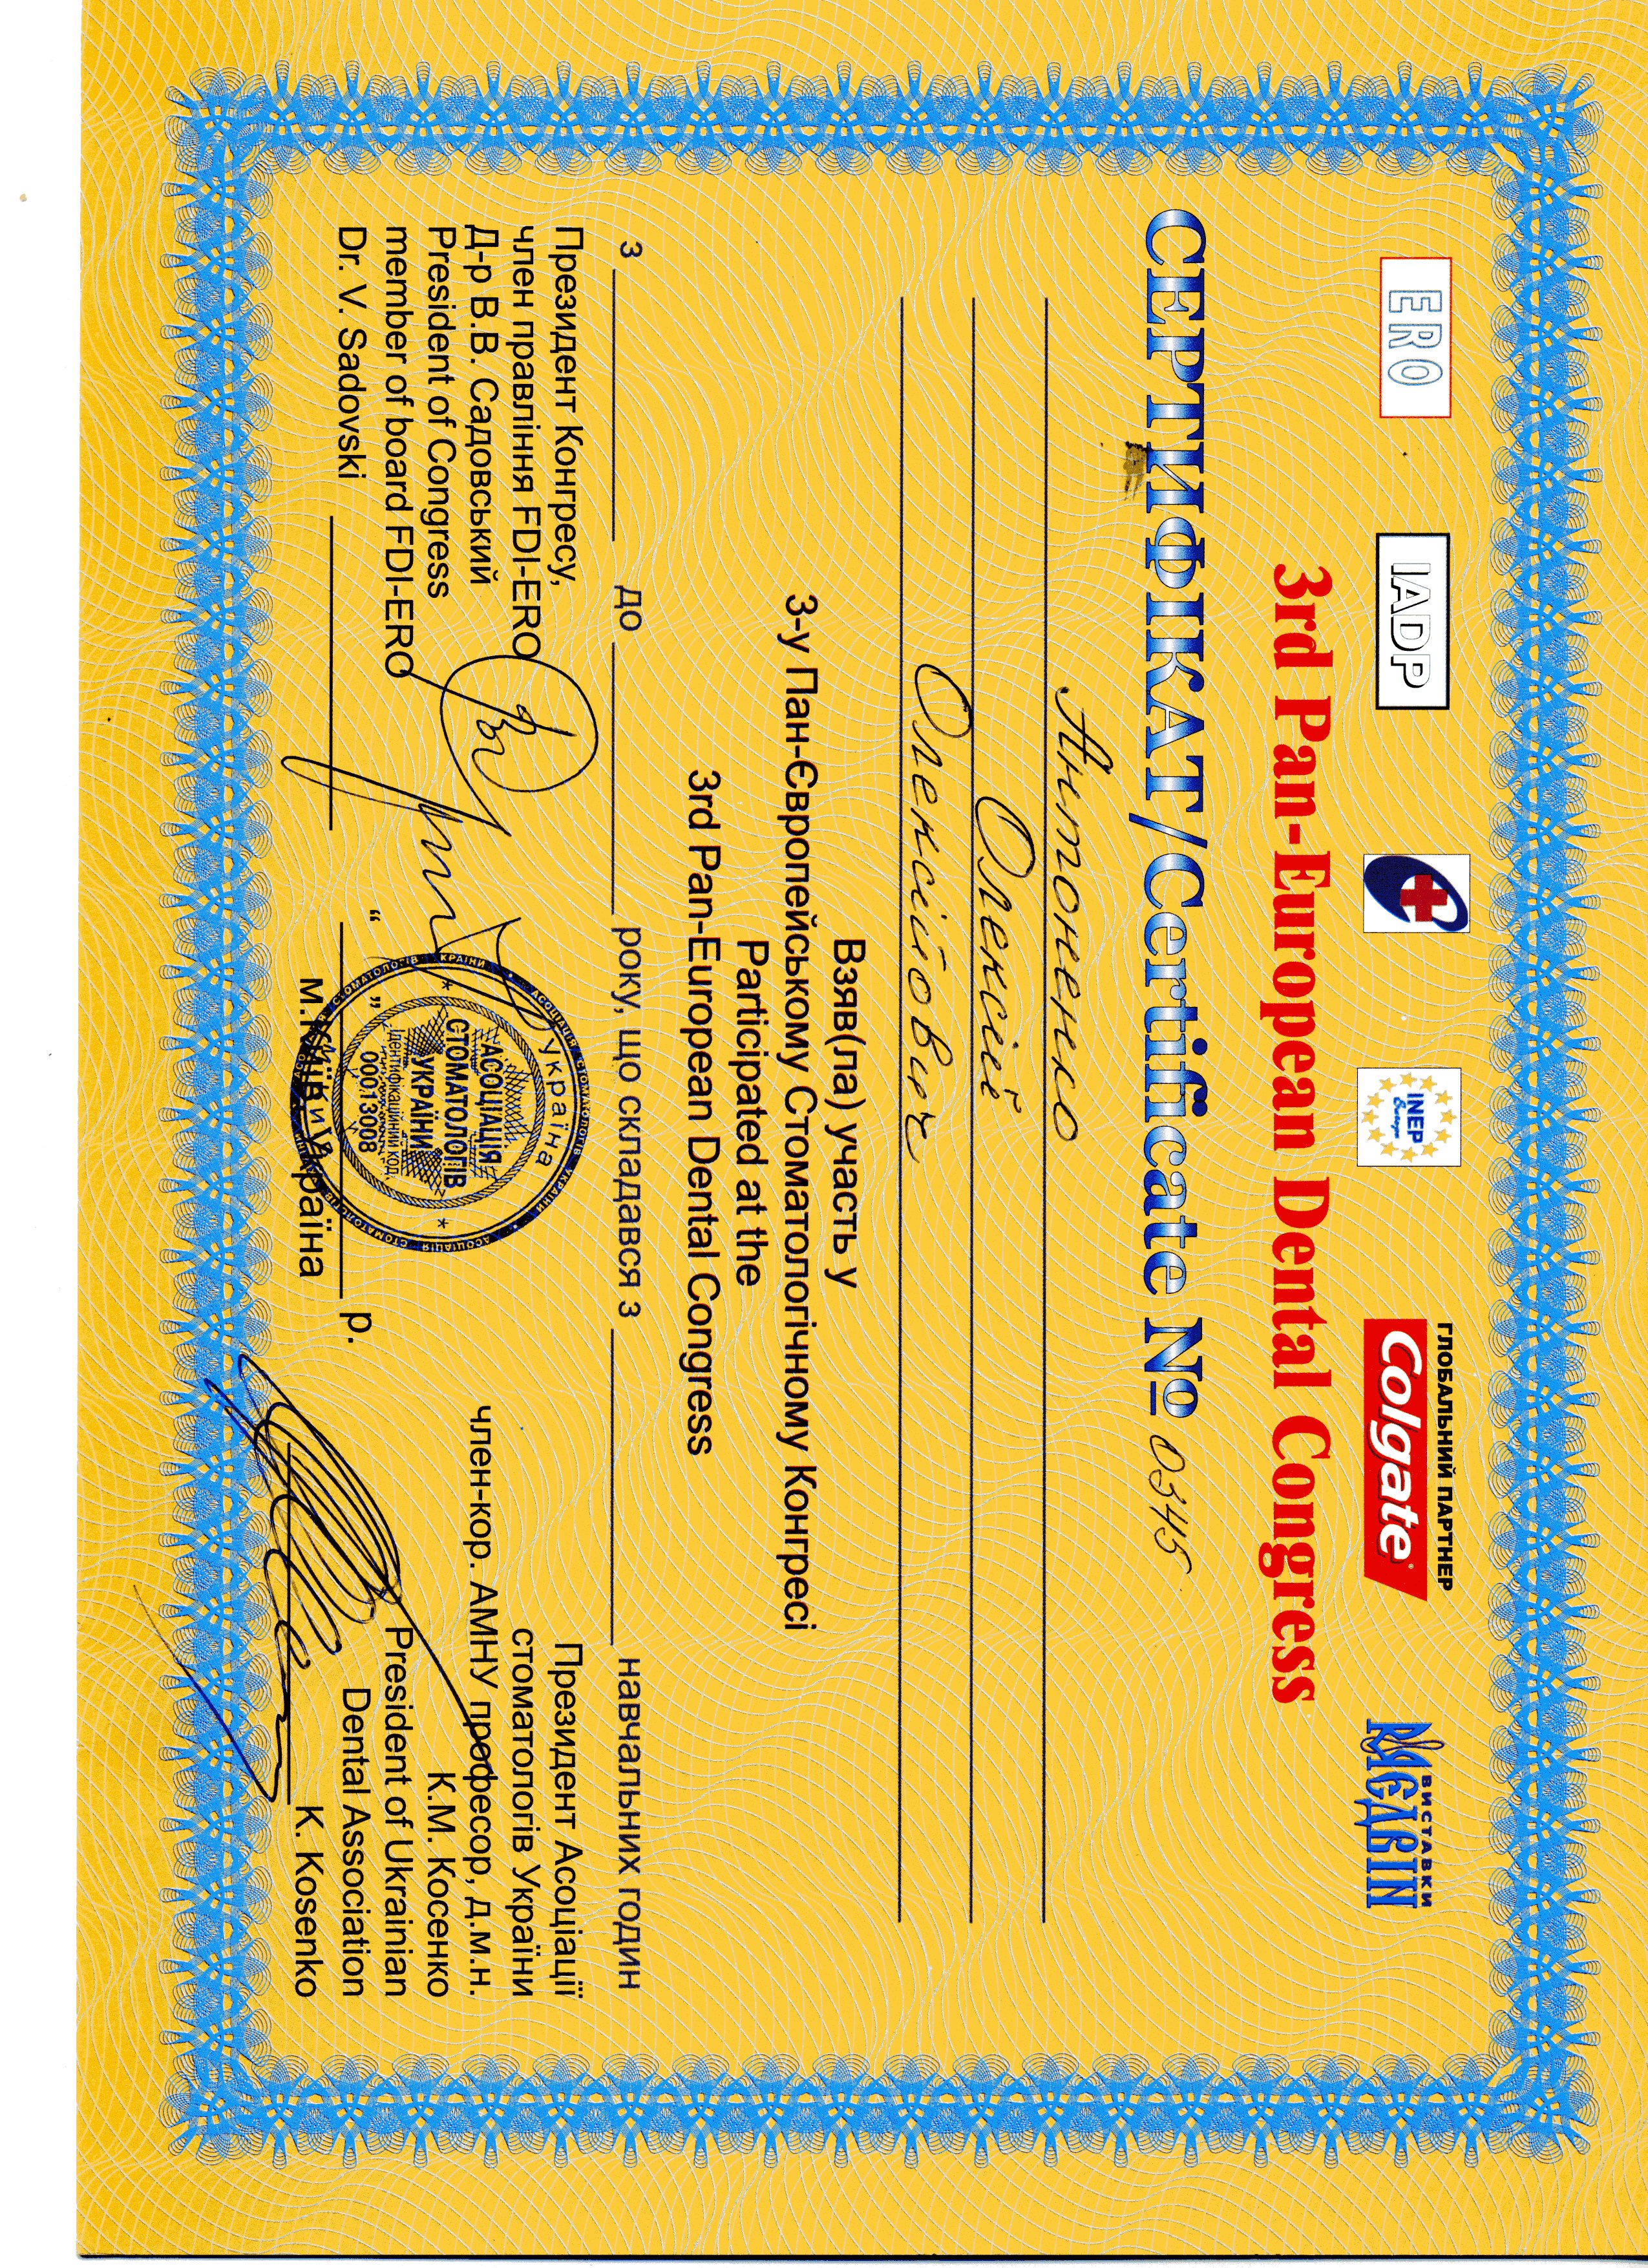 ERO
IADP
INEP
Europe
ГЛОБАЛЬНИЙ ПАРТНЕР
Colgate
ВИСТАВКИ
МЕДВІН
3rd Pan-European Dental Congress
СЕРТИФІКАТ/Certificate № 0345
Антоненко
Олексій
Олексійович
Взяв(ла) участь у
3-у Пан-Європейському Стоматологічному Конгресі
Participated at the
3rd Pan-European Dental Congress
з ____________ до ____________ року, що складався з ______________ навчальних годин
Президент Конгресу,
член правління FDI-ERO
Д-р В.В. Садовський
President of Congress
member of board FDI-ERO
Dr. V. Sadovski
АСОЦІАЦІЯ СТОМАТОЛОГІВ УКРАЇНИ
Україна
АСОЦІАЦІЯ
СТОМАТОЛОГІВ
УКРАЇНИ
Ідентифікаційний код
00013008
м. Київ
“ ” р.
м.Київ, Україна
Президент Асоціації
стоматологів України
член-кор. АМНУ професор, д.м.н.
К.М. Косенко
President of Ukrainian
Dental Association
K. Kosenko